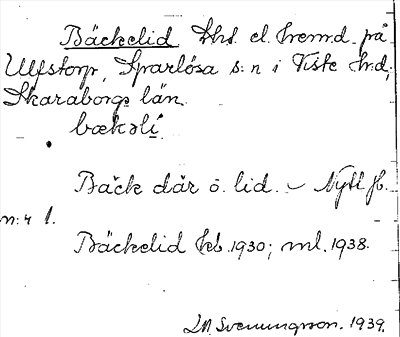 Bäckelid Lhs el. hemd. på
Ulfstorp, Sparlösa s:n i Viste hrd,
Skaraborgs län.
bækəlí
Bäck där o. lid. – Nytt f.
n:r 1.
Bäckelid kb. 1930; ml. 1938.
Svenungsson. 1939.